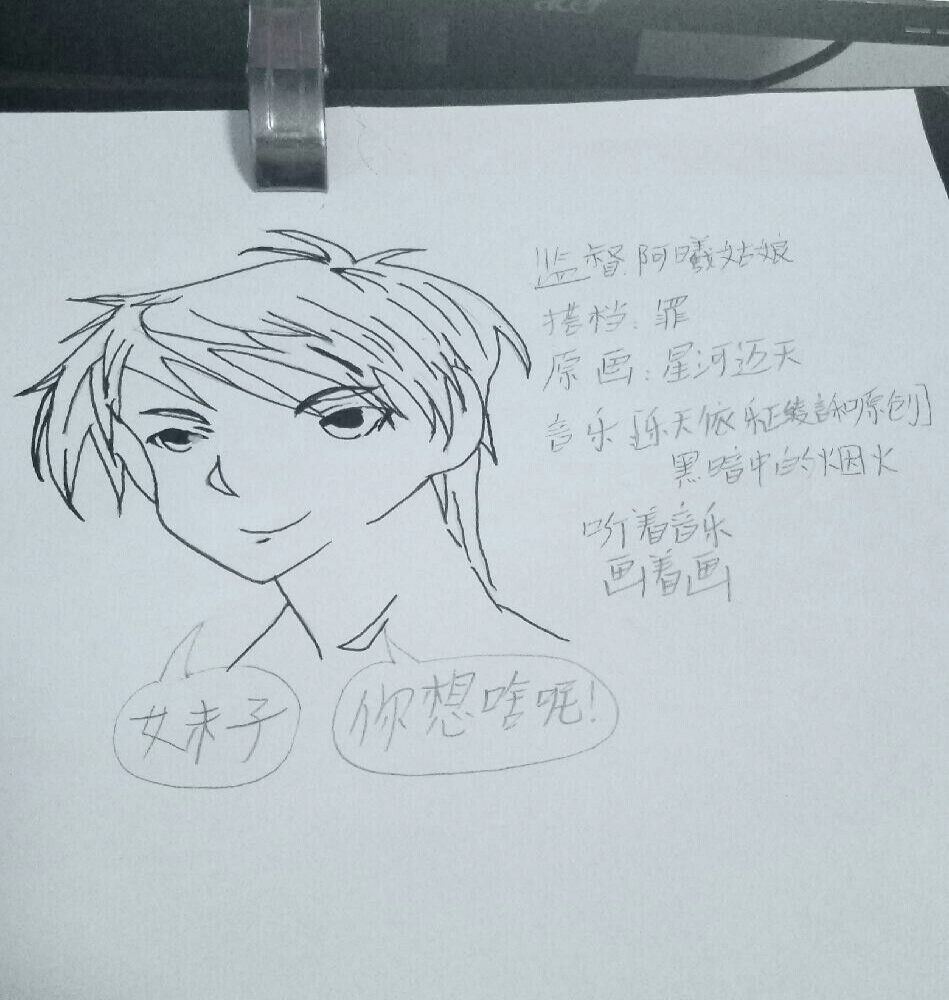 监督阿曦姑娘
搭档:罪
原画:星河迈天
音乐[乐天依 乐正绫 言和原创]
黑暗中的烟火
听着音乐
画着画
妹子
你想啥呢!
acer